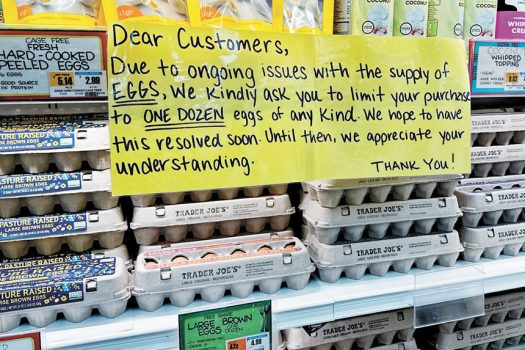 Dear Customers,
Due to ongoing issues with the supply of
EGGS, We kindly ask you to limit your purchase
to ONE DOZEN eggs of any kind. We hope to have
this resolved soon. Until then, we appreciate your
understanding.
THANK YOU!
CAGE FREE
FRESH
HARD-COOKED
PEELED EGGS
GOOD SOURCE
OF PROTEIN
5.14
2.98
COCONUT
WHIPPED
TOPPING
PASTURE RAISED
LARGE BROWN EGGS
PASTURE RAISED
LARGE BROWN EGGS
PASTURE RAISED
LARGE BROWN EGGS
PASTURE RAISED
TRADER JOE'S
TRADER JOE'S
TRADER JOE'S
TRADER JOE'S
TRADER JOE'S
TRADER JOE'S
TRADER JOE'S
TRADER JOE'S
TRADER JOE'S
FREE RANGE
LARGE BROWN
DOZEN
4.49